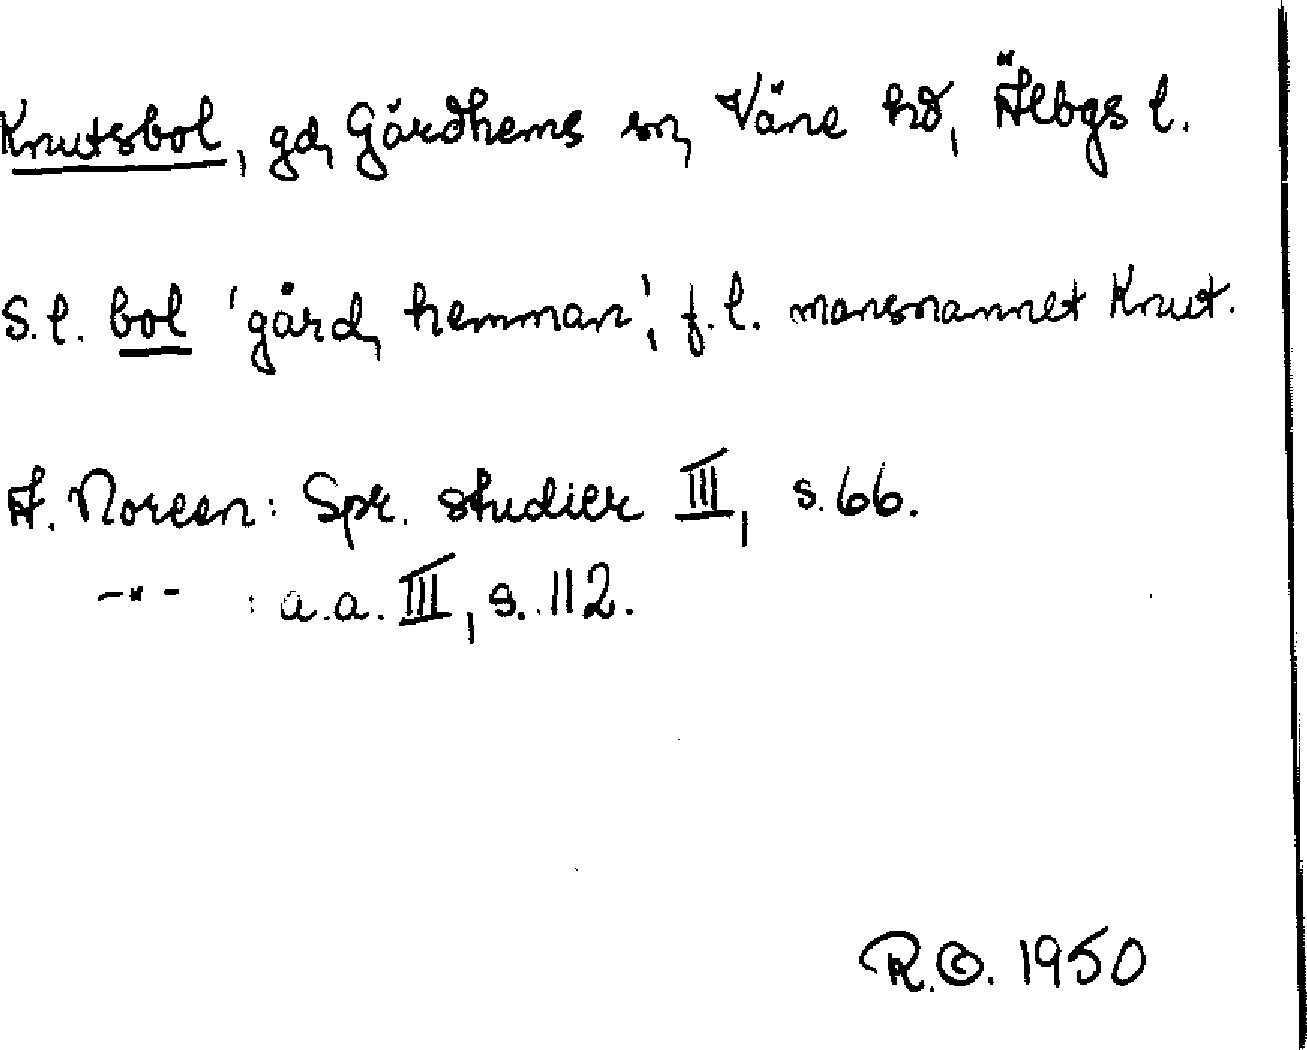 Knutsbol, gd, Gärdhems sn, Väne hd, Älbgs l.
S.l. bol 'gård, hemman'; f.l. mansnamnet Knut.
A. Noreen: Spr. studier III, s. 66.
-"- : a.a. III, s. 112.
R.O. 1950